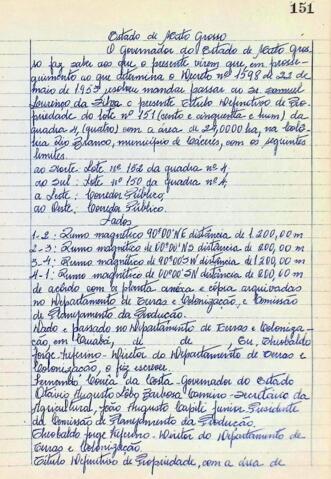 151
Estado de Mato Grosso
O Governador do Estado de Mato Gros-
so faz saber aos que o presente virem que, em prosse-
guimento ao que determina o Decreto nº 1598 de 22 de
maio de 1953 resolveu mandar passar ao sr. Samuel
Lourenço da Silva o presente Título Definitivo de Pro-
priedade do lote nº 151 (cento e cinquenta e hum) da
quadra 4, (quatro) com a área de 24,0000 ha, na Colô-
nia Rio Branco, município de Cáceres, com os seguintes
limites.
ao Norte: Lote nº 152 da quadra nº 4,
ao Sul: Lote nº 150 da quadra nº 4,
a Leste: Corredor Público,
ao Oeste: Corredor Público.
Lados
1-2: Rumo magnético 90°00'NE distância de 1.200,00 m
2-3: Rumo magnético de 00°00'NS distância de 200,00 m
3-4: Rumo magnético de 90°00'SW distância de 1.200,00 m
4-1: Rumo magnético de 00°00'SN distância de 200,00 m
de acôrdo com a planta anéxa e cópia arquivadas
no Departamento de Terras e Colonização, e Comissão
de Planejamento da Produção.
Dado e passado no Departamento de Terras e Coloniza-
ção, em Cuiabá, de de Eu,
Jorge - Diretor do Departamento de Terras e
Colonização, o fiz escrever.
Fernando Corrêa da Costa - Governador do Estado
Otávio Augusto Lôbo Barbosa Carneiro - Secretário da
Agricultura, João Augusto Capilé Junior - Presidente
da Comissão de Planejamento da Produção.
Jorge - Diretor do Departamento de
Terras e Colonização.
Título Definitivo de Propriedade, com a área de